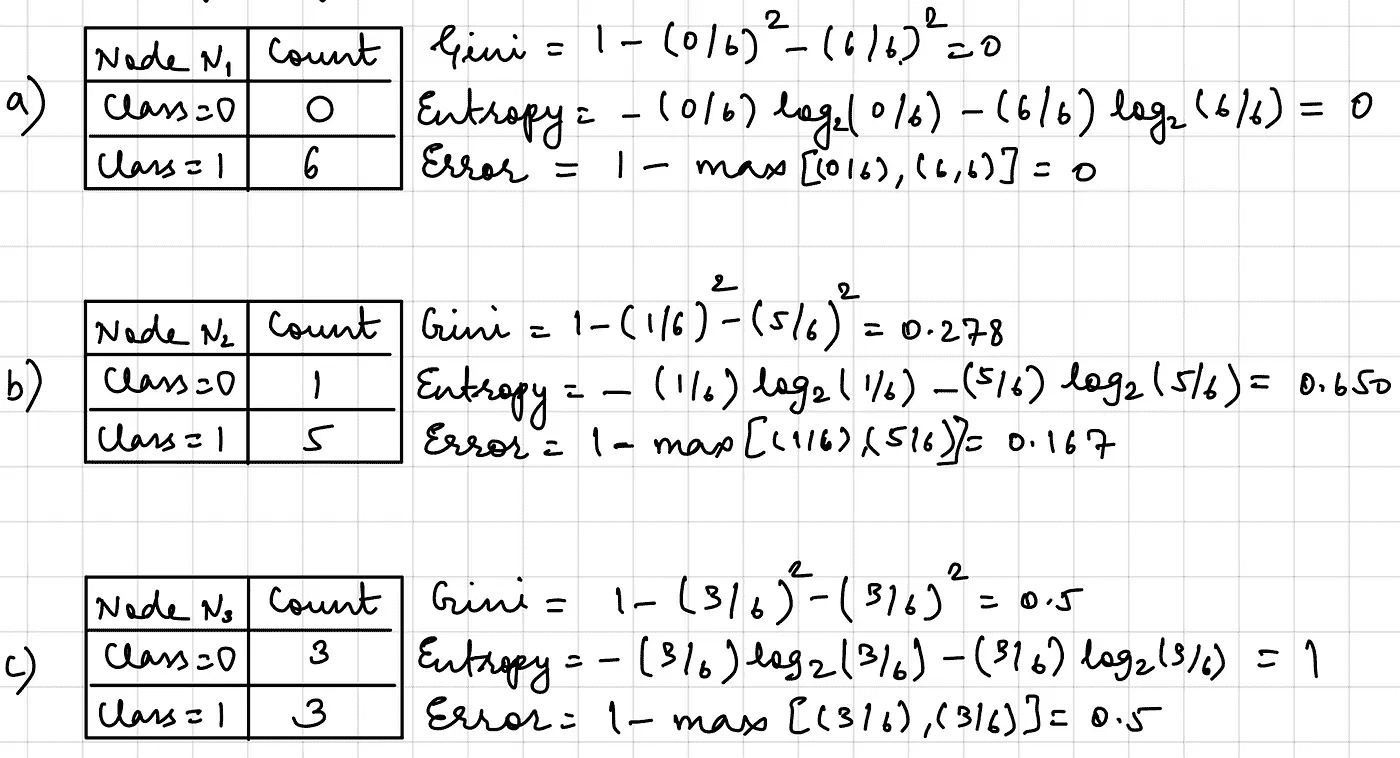 a)
Node N₁ Count
Class=0 0
Class=1 6
Gini = 1 - (0/6)² - (6/6)² = 0
Entropy = - (0/6) log₂(0/6) - (6/6) log₂(6/6) = 0
Error = 1 - max[(0/6),(6,6)] = 0
b)
Node N₂ Count
Class=0 1
Class=1 5
Gini = 1-(1/6)²-(5/6)² = 0.278
Entropy = - (1/6) log₂(1/6) - (5/6) log₂(5/6) = 0.650
Error = 1 - max[(1/6),(5/6)] = 0.167
c)
Node N₃ Count
Class=0 3
Class=1 3
Gini = 1-(3/6)²-(3/6)² = 0.5
Entropy = -(3/6) log₂(3/6) - (3/6) log₂(3/6) = 1
Error = 1 - max[(3/6),(3/6)] = 0.5